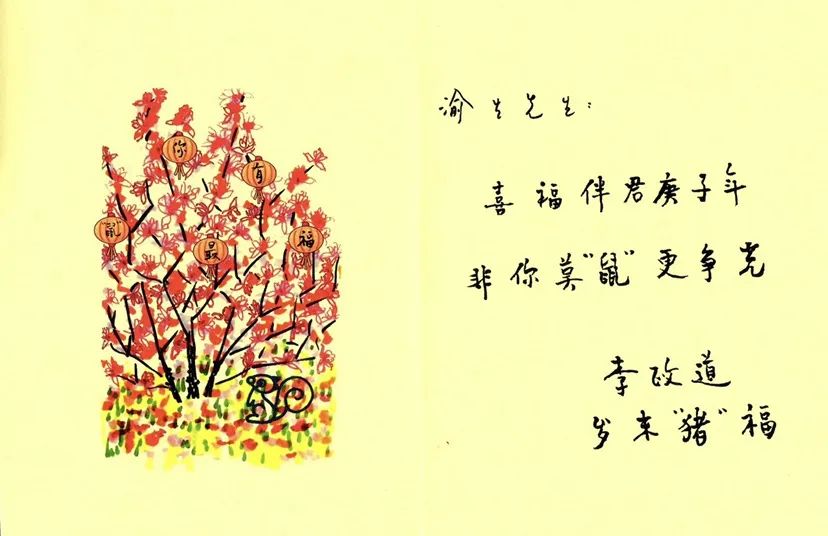 鼠你最有福
渝生先生:
喜福伴君庚子年
非你莫"鼠"更争光
李政道
岁末"猪"福